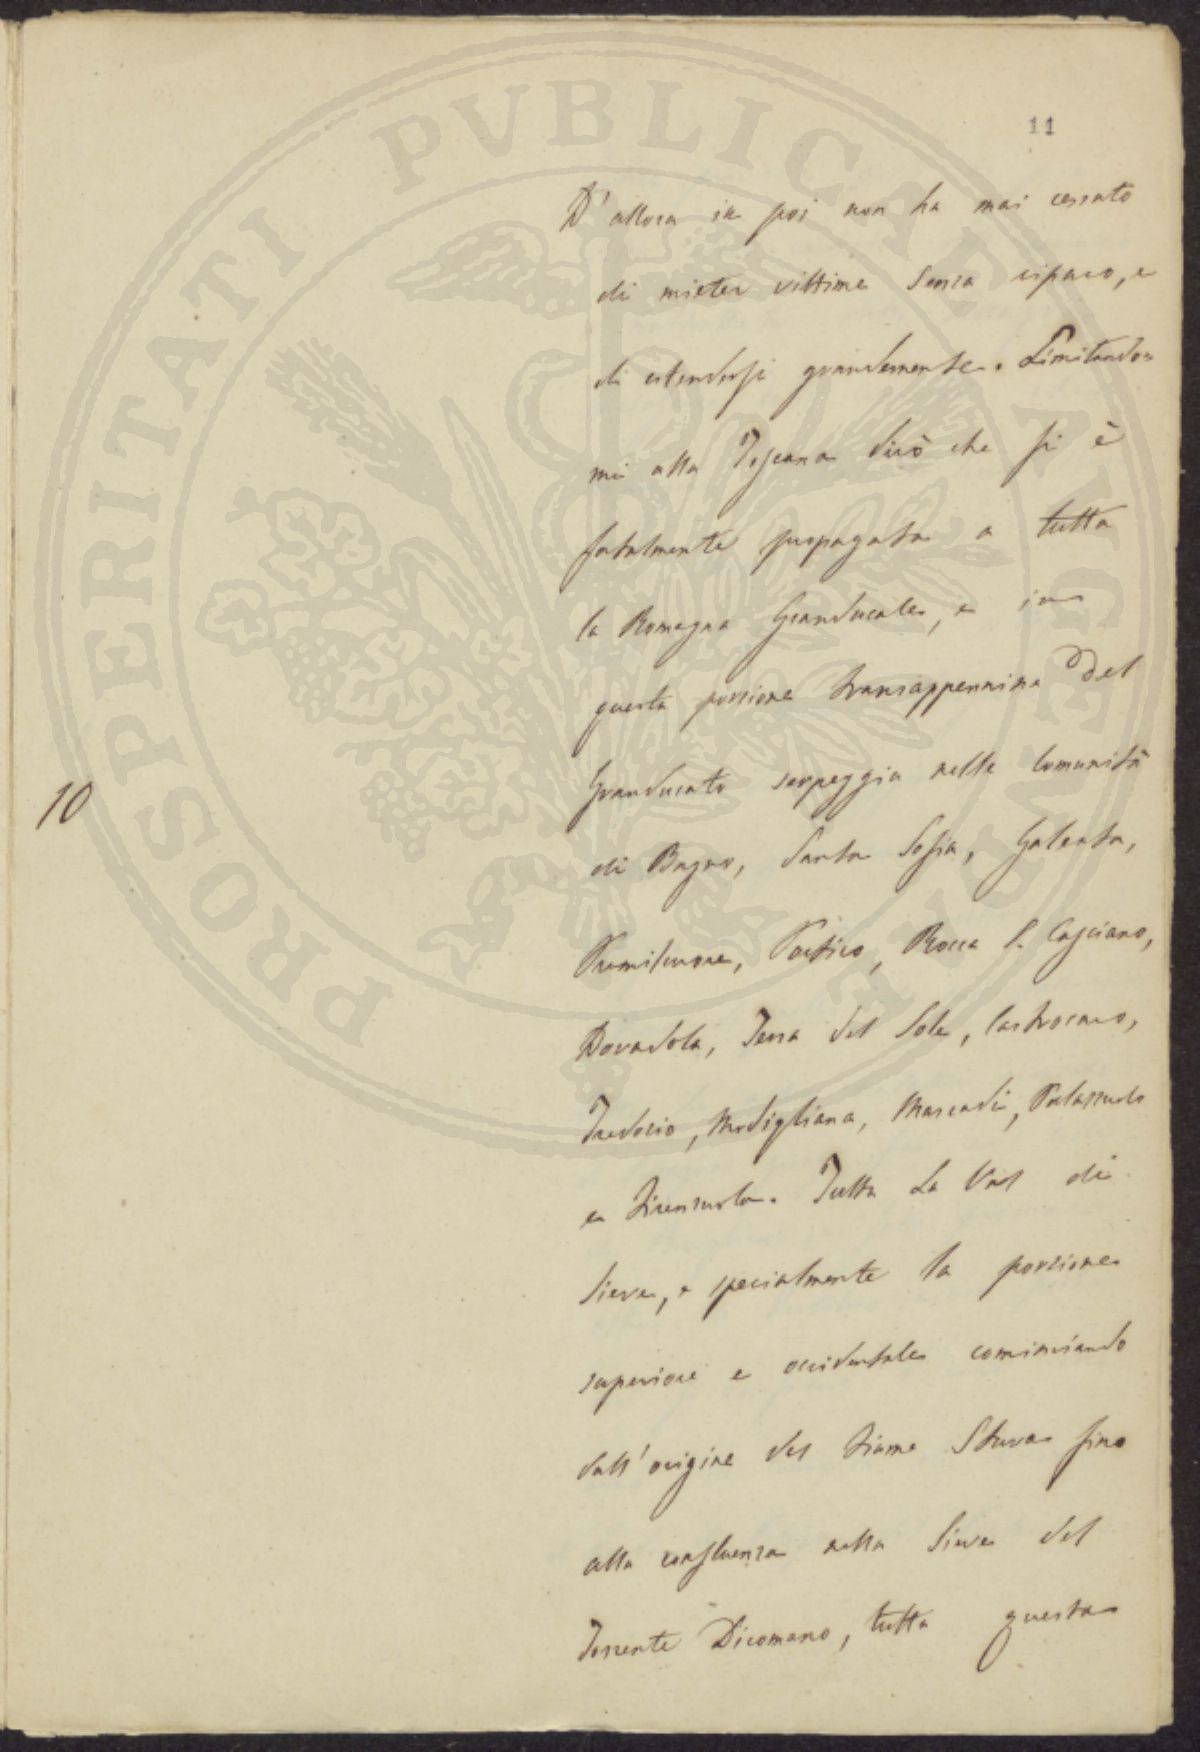 11
D'allora in poi non ha mai cessato
di mieter vittime senza riparo, e
di estendersi grandemente. Limitando=
mi alla Toscana dirò che si è
fatalmente propagata a tutta
la Romagna Granducale, e in
questa porzione transappennina del
Granducato serpeggia nelle Comunità
10
di Bagno, Santa Sofia, Galeata,
Premilcuore, Portico, Rocca S. Casciano,
Dovadola, Terra del Sole, Castrocaro,
Tredozio, Modigliana, Marradi, Palazzuolo
e Firenzuola. Tutta La Val di
Sieve, e specialmente la porzione
superiore e occidentale cominciando
dall'origine del fiume Stura fino
alla confluenza nella Sieve del
Torrente Dicomano, tutta questa
PROSPERITATI PVBLICAE AVGENDAE